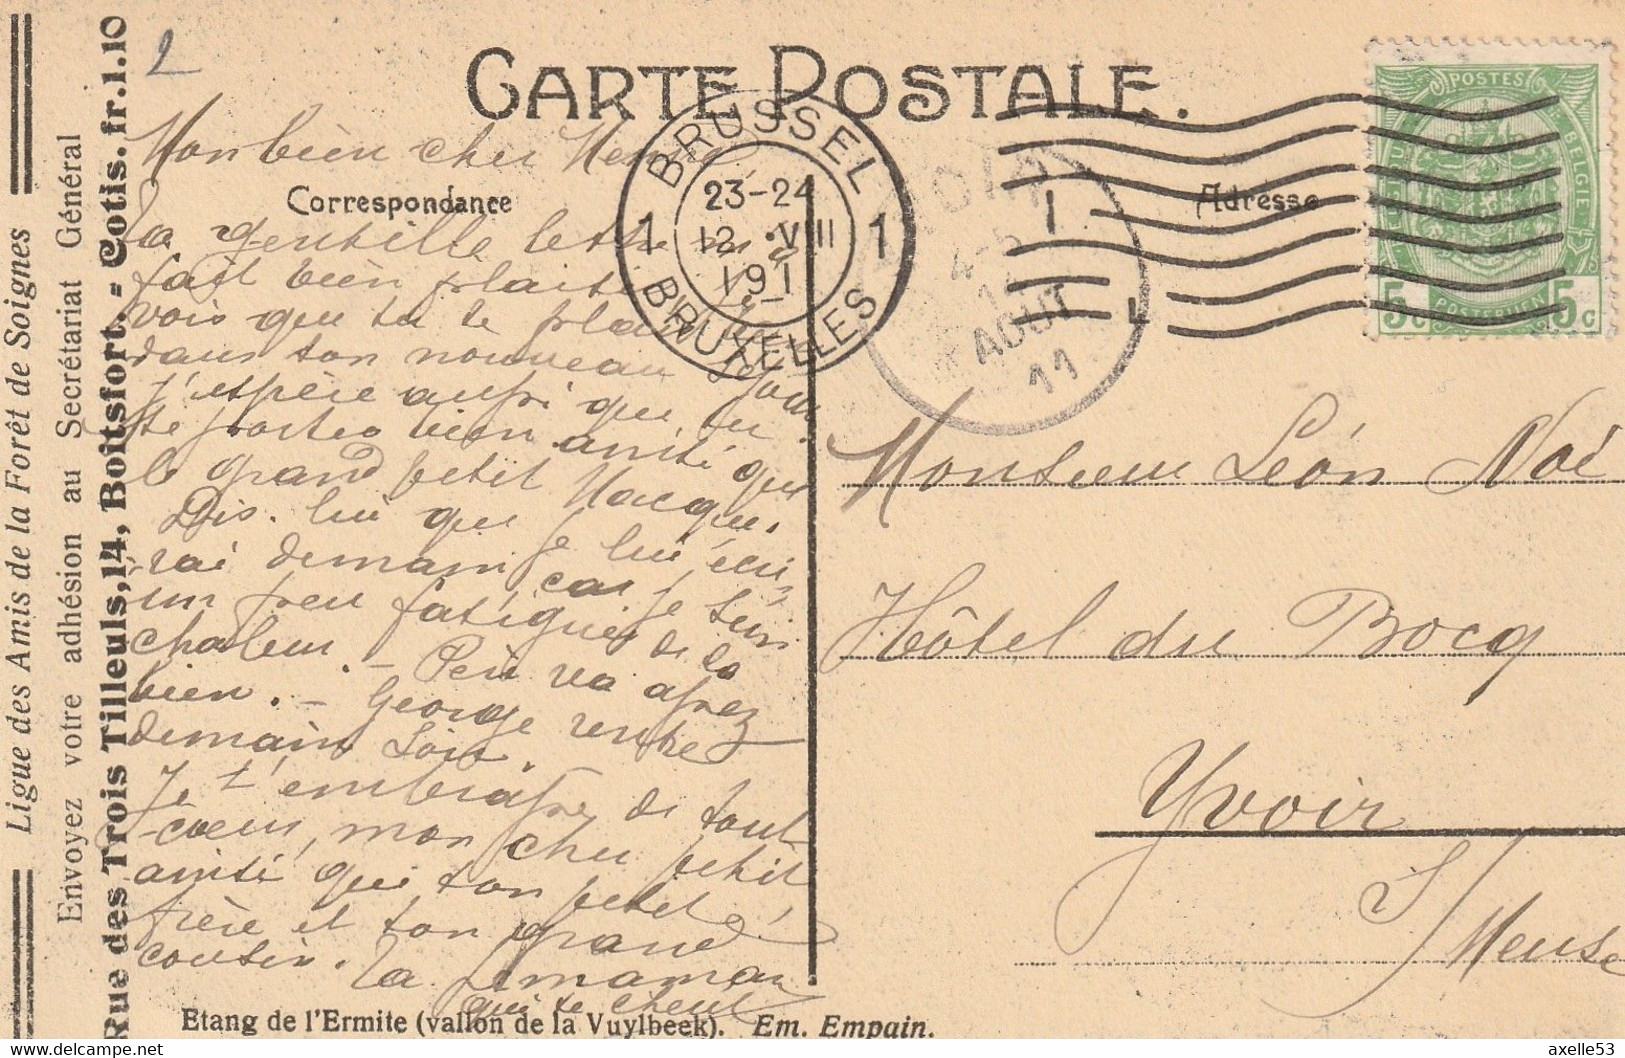 Ligue des Amis de la Forêt de Soignes
Envoyez votre adhésion au Secrétariat Général
Rue des Trois Tilleuls, 14, Boitsfort. - Cotis. fr. 1.10
2
CARTE POSTALE.
Correspondance
Adresse
Mon bien cher
Ta gentille lettre m'a
fait bien plaisir. Je
vois que tu te plais
dans ton nouveau séjour
J'espère aussi que tu
te portes bien ainsi que
le grand petit Macqui.
Dis-lui que je lui écri-
rai demain car je suis
un peu fatiguée de la
chaleur. - Père va assez
bien. - George rentre
demain soir.
Je t'embrasse de tout
cœur, mon cher petit
ainsi que ton petit
frère et ton grand
cousin.
Ta maman
qui te
Etang de l'Ermite (vallon de la Vuylbeek). Em. Empain.
BRUSSEL
1 23-24 1
12 ·VIII
191
BRUXELLES
4-5
AOUT
11
POSTES
BELGIE
5c POSTERIJEN 5c
Monsieur Léon Noé
Hôtel du Bocq
Yvoir
S/Meuse
axelle53